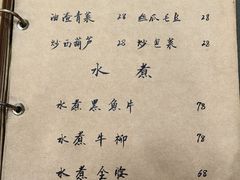 油渣青菜 28 丝瓜毛豆
炒西葫芦 28 炒包菜 28
水煮
水煮黑鱼片 78
水煮牛柳 78
水煮全 68